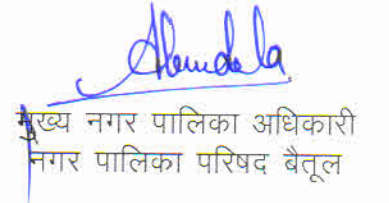 मुख्य नगर पालिका अधिकारी
नगर पालिका परिषद बैतूल